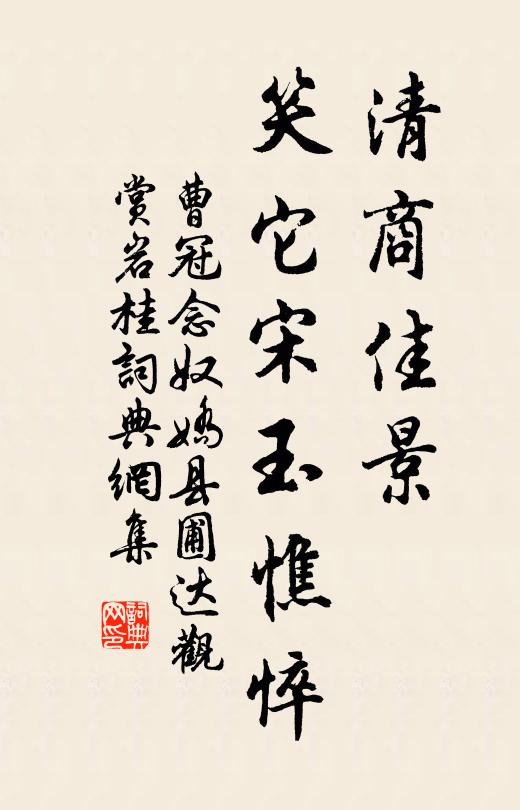 清商佳景
笑它宋玉憔悴
曹冠念奴嬌县圃达觀
赏岩桂詞典網集
詞典网印